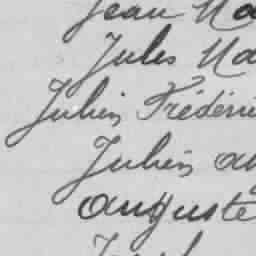 Jean Ma
Jules Ma
Julien Frédéri
Julien au
auguste